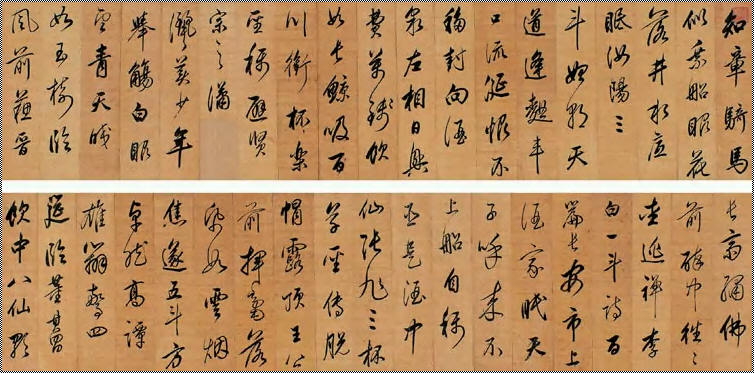 知章騎馬
似乘船眼花
落井水底
眠汝陽三
斗始朝天
道逢麴車
口流涎恨不
移封向酒
泉左相日興
費萬錢飲
如長鯨吸百
川銜杯樂
聖稱避賢
宗之瀟
灑美少年
舉觴白眼
望青天皎
如玉樹臨
風前蘇晉
長齋繡佛
前醉中往々
愛逃禪李
白一斗詩百
篇長安市上
酒家眠天
子呼來不
上船自稱
臣是酒中
仙張旭三杯
草聖傳脫
帽露頂王公
前揮毫落
紙如雲烟
焦遂五斗方
卓然高譚
雄辯驚四
筵臨董其昌
飲中八仙歌